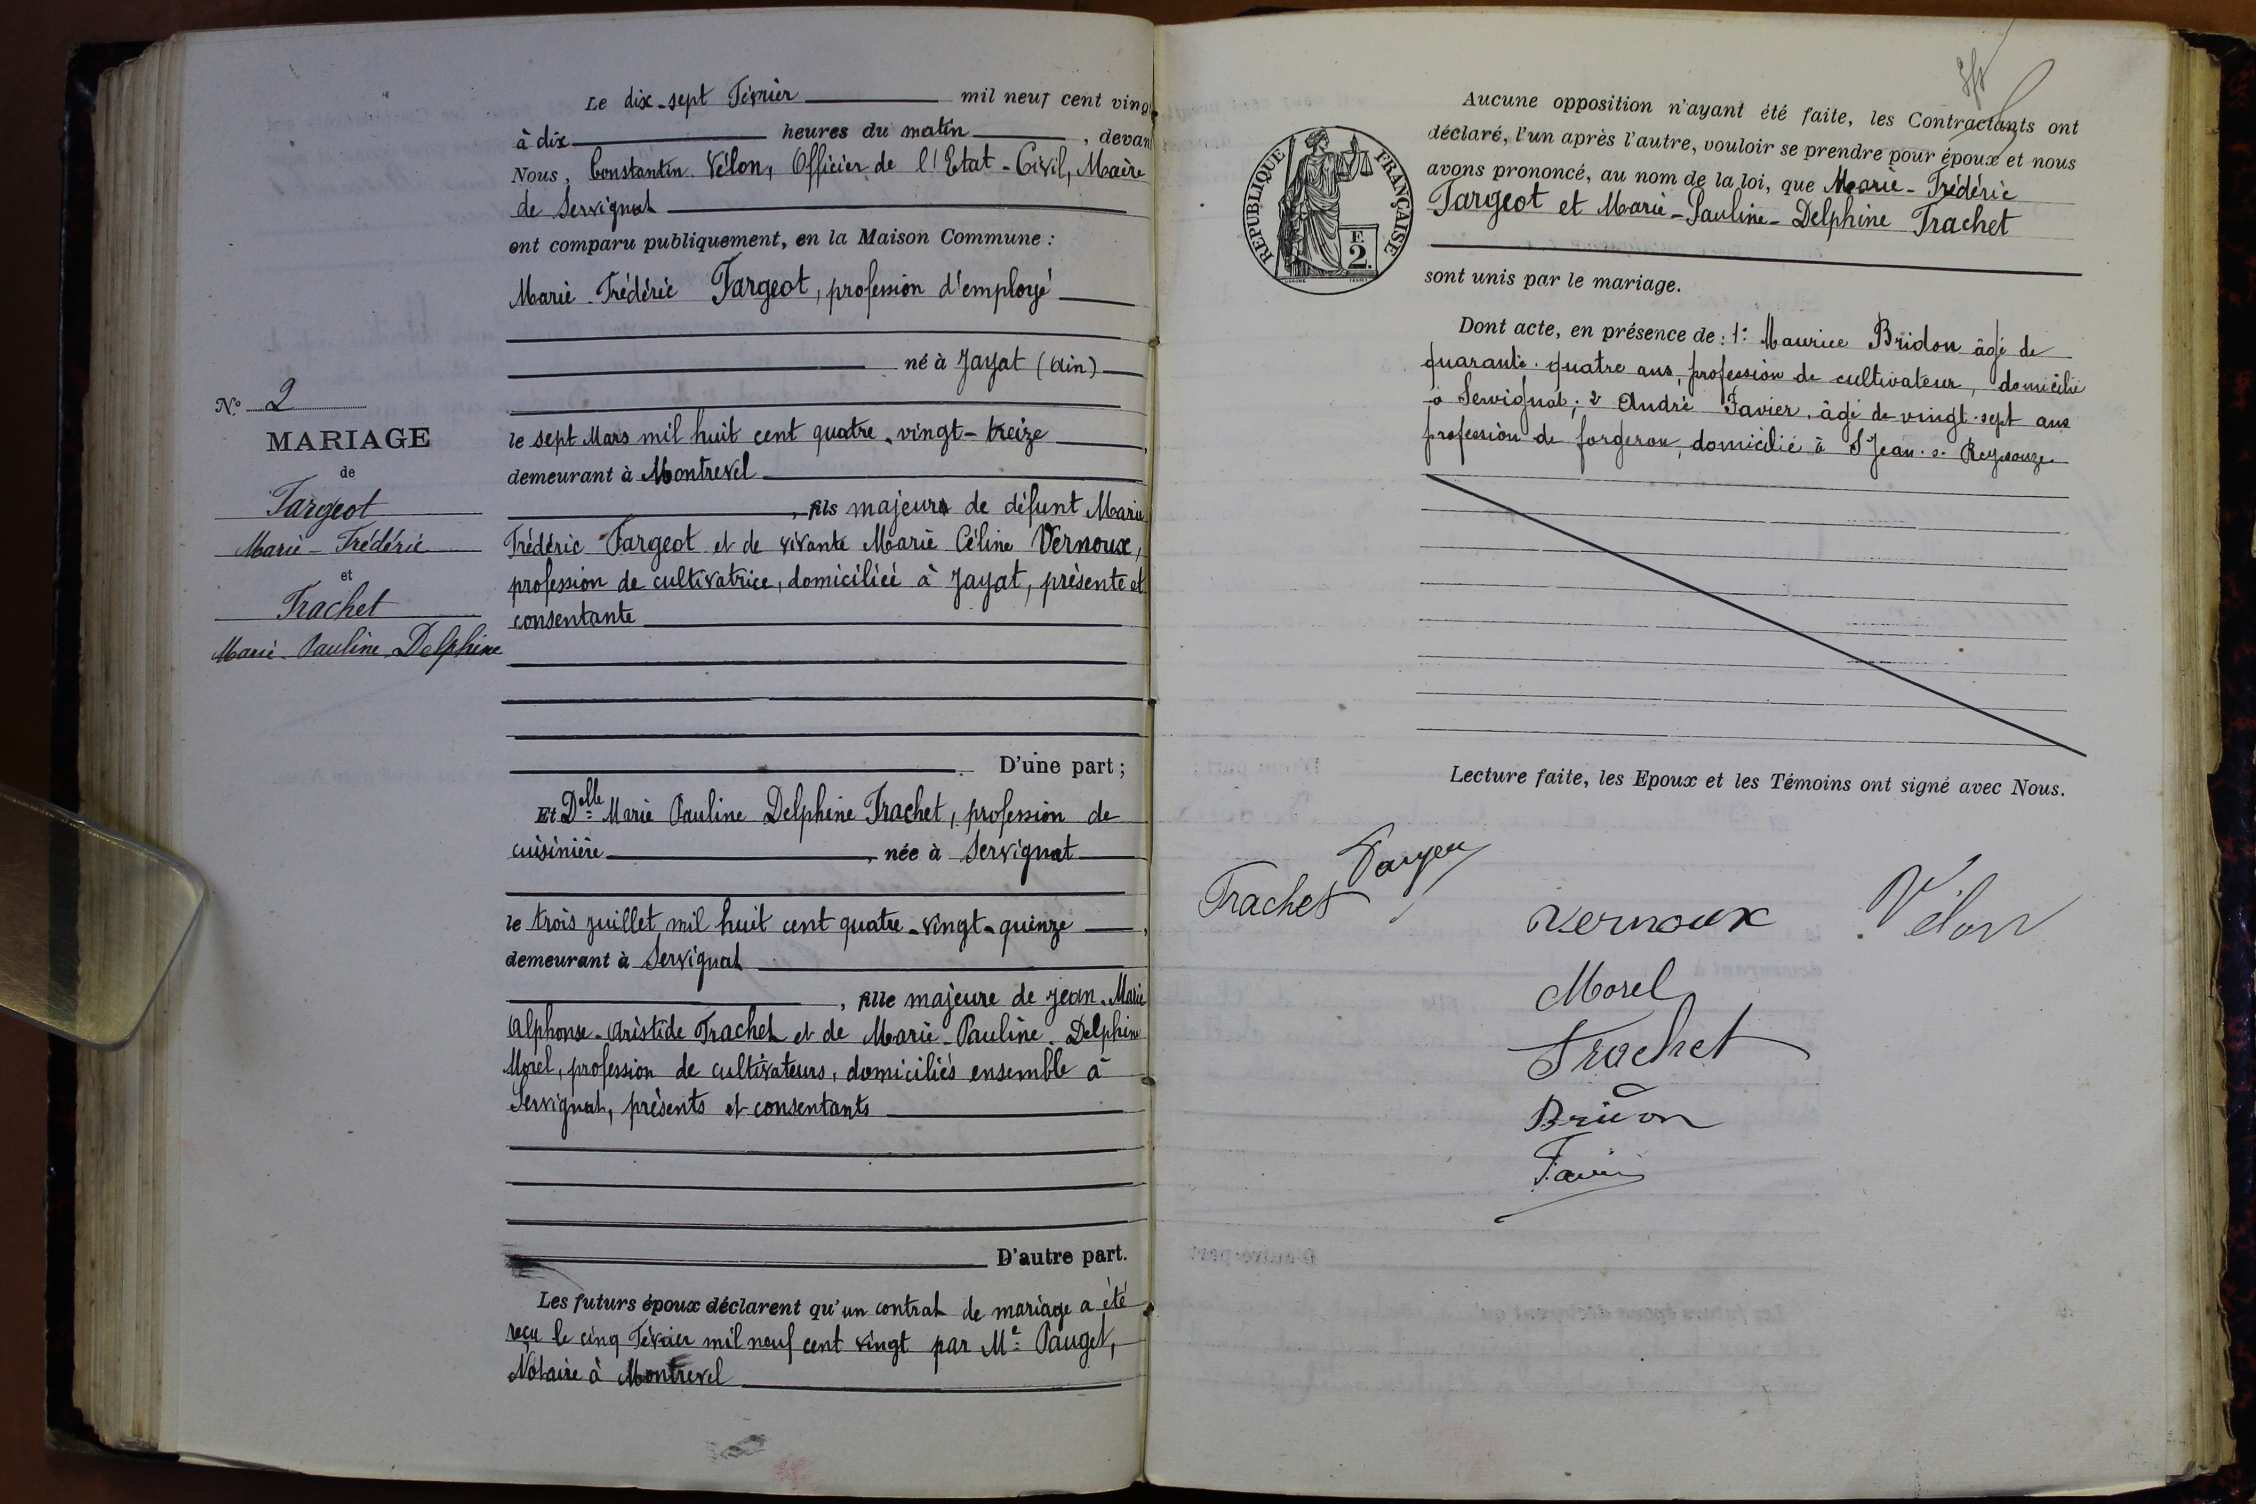 Le dix-sept Février mil neuf cent vingt
à dix heures du matin, devant
Nous, Constantin Vélon, Officier de l'Etat-Civil, Maire
de Servignat
ont comparu publiquement, en la Maison Commune :
Marie-Frédéric Fargeot, profession d'employé
né à Jayat (Ain)
le sept Mars mil huit cent quatre-vingt-treize,
demeurant à Montrevel
, fils majeur de défunt Marie
Frédéric Fargeot et de vivante Marie Céline Vernoux,
profession de cultivatrice, domiciliée à Jayat, présente et
consentante
D'une part ;
Et Delle Marie Pauline Delphine Trachet, profession de
cuisinière, née à Servignat
le trois juillet mil huit cent quatre-vingt-quinze,
demeurant à Servignat
, fille majeure de Jean-Marie
Alphonse-Aristide Trachet et de Marie-Pauline-Delphine
Morel, profession de cultivateurs, domiciliés ensemble à
Servignat, présents et consentants
D'autre part.
Les futurs époux déclarent qu'un contrat de mariage a été
reçu le cinq Février mil neuf cent vingt par Me Pauget,
Notaire à Montrevel
N.° 2
MARIAGE
de
Fargeot
Marie-Frédéric
et
Trachet
Marie-Pauline-Delphine
REPUBLIQUE FRANÇAISE
F.
2.
Aucune opposition n'ayant été faite, les Contractants ont
déclaré, l'un après l'autre, vouloir se prendre pour époux et nous
avons prononcé, au nom de la loi, que Marie-Frédéric
Fargeot et Marie-Pauline-Delphine Trachet
sont unis par le mariage.
Dont acte, en présence de : 1° Maurice Bridon âgé de
quarante-quatre ans, profession de cultivateur, domicilié
à Servignat ; 2 André Favier, âgé de vingt-sept ans
profession de forgeron, domicilié à St Jean-s-Reyssouze
Lecture faite, les Epoux et les Témoins ont signé avec Nous.
Fargeot
Trachet
Vernoux
Vélon
Morel
Trachet
Bridon
Favier